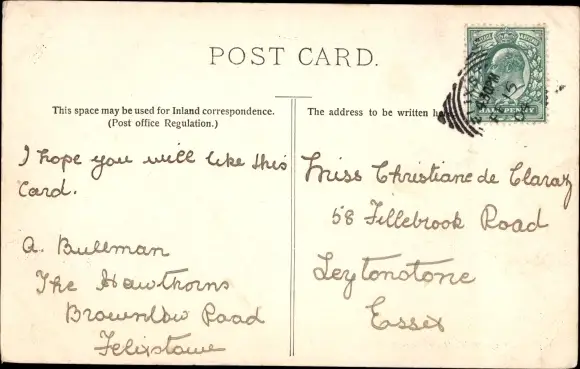 POST CARD.
This space may be used for Inland correspondence.
(Post office Regulation.)
I hope you will like this
Card.
A. Bullman
The Hawthorns
Brownlow Road
Felixstowe
The address to be written
Miss Christiane de Claraz
58 Fillebrook Road
Leytonstone
Essex
HALFPENNY
4.30PM
FE 15
04